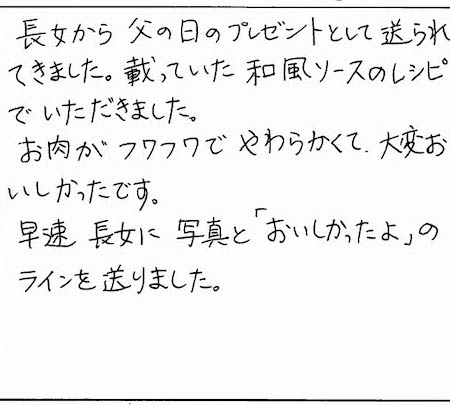 長女から 父の日のプレゼントとして 送られ
てきました。載っていた 和風ソースのレシピ
で いただきました。
お肉が フワフワで やわらかくて、大変お
いしかったです。
早速 長女に 写真と「おいしかったよ」の
ラインを 送りました。